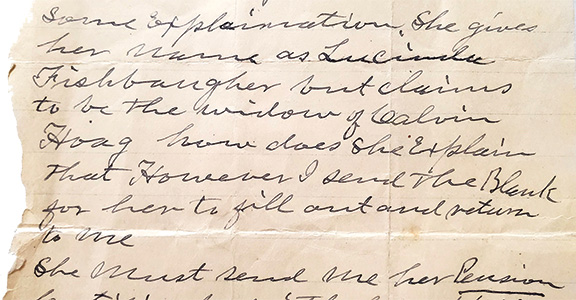 Some Explaination. She gives
her name as Lucinda
Fishbaugher but claims
to be the widow of Calvin
Hoag how does she Explain
that However I send the Blank
for her to fill out and return
to me
She Must send me her Pension